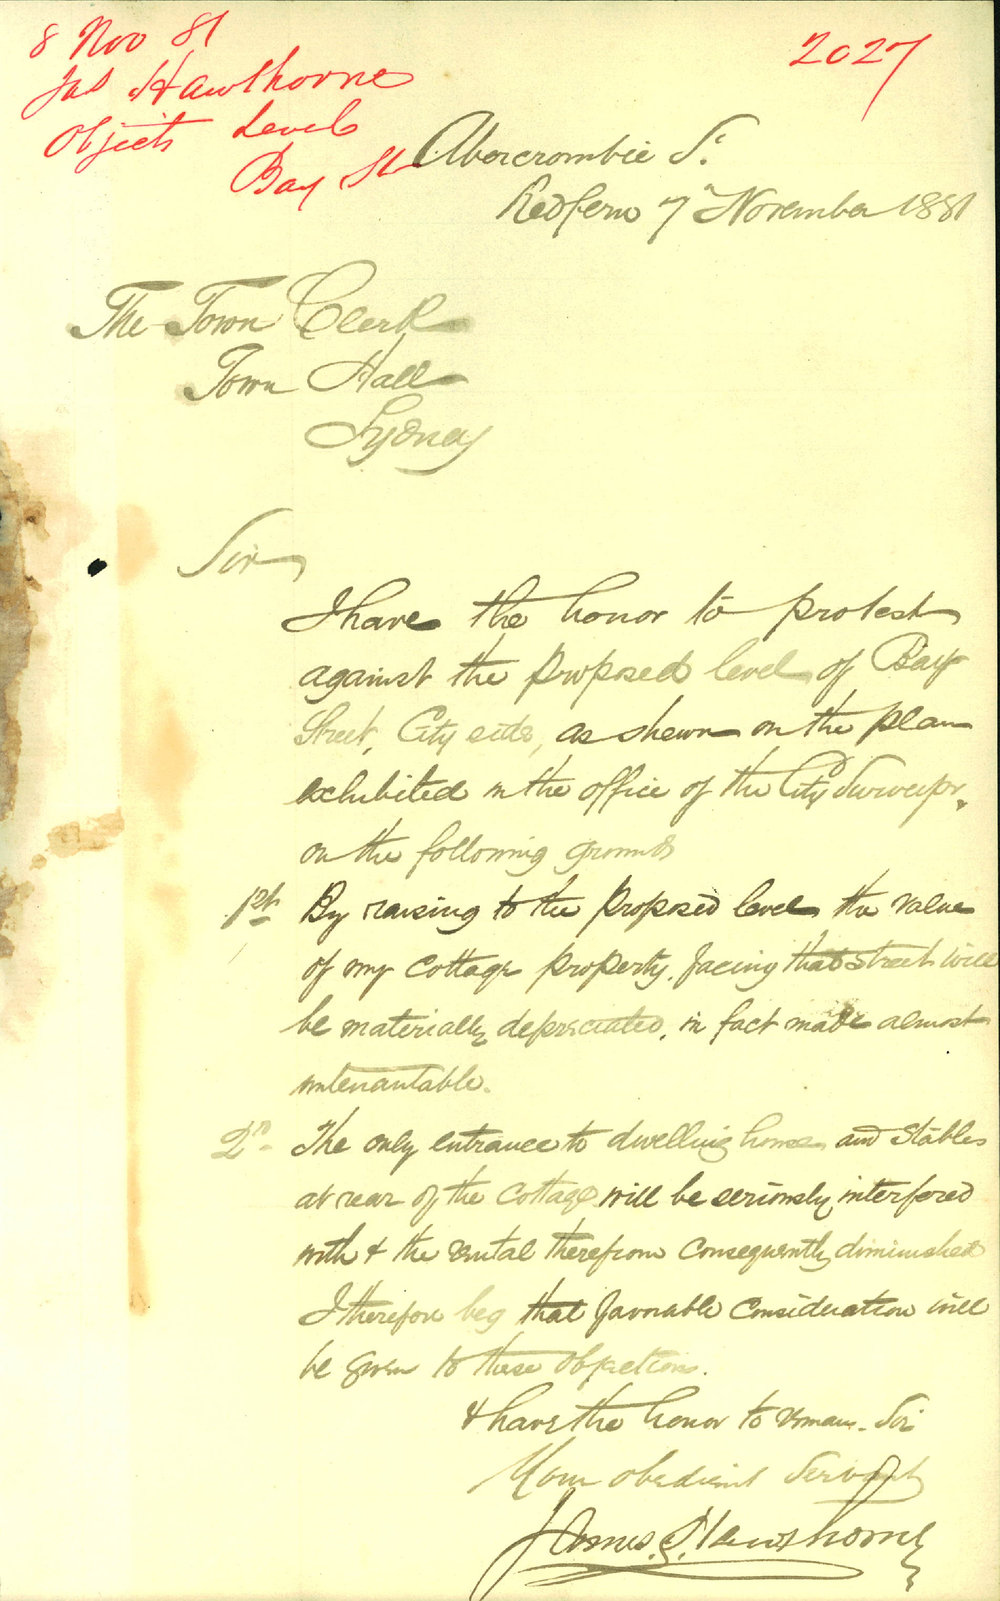 8 Nov 81
Jas Hawthorne
Objects Levels
Bay St
2027
Abercrombie St
Redfern 7th November 1881
The Town Clerk
Town Hall
Sydney
Sir
I have the honor to protest
against the proposed level of Bay
Street, City side, as shewn on the plan
exhibited in the office of the City Surveyor,
on the following grounds
1st By raising to the proposed level the value
of my cottage property, facing that street will
be materially depreciated, in fact made almost
untenantable.
2nd The only entrance to dwelling house and Stables
at rear of the Cottage will be seriously interfered
with & the rental therefrom Consequently diminished
I therefore beg that favorable Consideration will
be given to these objections.
& have the honor to remain Sir
Your obedient Servant
James Hawthorne